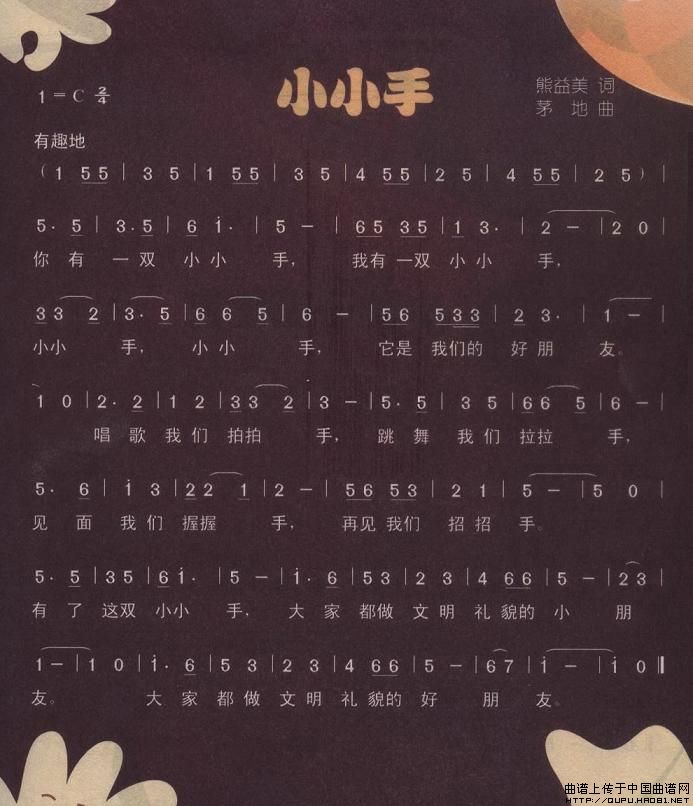 小小手
熊益美 词
1 = C 2/4
茅 地 曲
有趣地
( 1 55 | 3 5 | 1 55 | 3 5 | 4 55 | 2 5 | 4 55 | 2 5 ) |
5. 5 | 3. 5 | 6 i. | 5 – | 65 35 | 1 3. | 2 – | 2 0 |
你 有 一 双 小 小 手， 我有 一双 小 小 手，
33 2 | 3. 5 | 6 6 5 | 6 – | 56 533 | 2 3. | 1 – |
小小 手， 小 小 手， 它是 我们的 好 朋 友。
1 0 | 2. 2 | 1 2 | 33 2 | 3 – | 5. 5 | 3 5 | 66 5 | 6 – |
唱 歌 我 们 拍拍 手， 跳 舞 我 们 拉拉 手，
5. 6 | i 3 | 22 1 | 2 – | 56 53 | 2 1 | 5 – | 5 0 |
见 面 我 们 握握 手， 再见 我们 招 招 手。
5. 5 | 35 | 6 i. | 5 – | i. 6 | 53 | 2 3 | 4 66 | 5 – | 23 |
有 了 这双 小小 手， 大 家 都做 文 明 礼 貌的 小 朋
1 – | 1 0 | i. 6 | 5 3 | 2 3 | 4 66 | 5 – | 67 | i – | i 0 ‖
友。 大 家 都 做 文 明 礼 貌的 好 朋 友。
曲谱上传于中国曲谱网
HTTP://QUPU.HAO81.NET